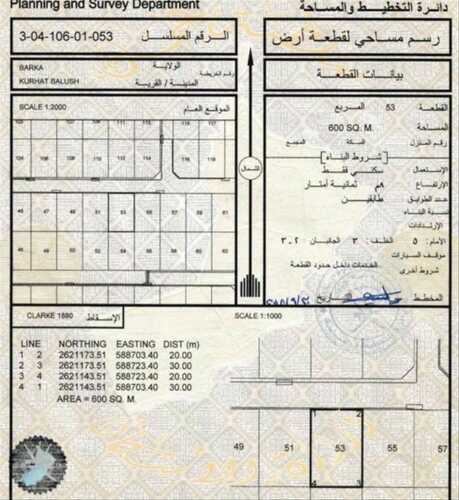 Planning and Survey Department
دائرة التخطيط والمساحة
3-04-106-01-053
الرقم المسلسل
رسم مساحي لقطعة أرض
BARKA
KURHAT BALUSH
الولاية
رقم الخريطة
المدينة / القرية
بيانات القطعة
SCALE 1:2000
الموقع العام
القطعة
53
المربع
المساحة
600 SQ. M.
رقم المنزل
السكة
المجمع
شروط البناء
الاستعمال
سكني فقط
الارتفاع
٨م ثمانية أمتار
عدد الطوابق
طابقين
نسبة البناء
الارتدادات
الأمام: ٥
الخلف: ٣
الجانبان: ٣،٢
موقف السيارات
الخدمات داخل حدود القطعة
شروط أخرى
المخطط
التاريخ
الشمال
CLARKE 1880
الإسقاط
SCALE 1:1000
LINE NORTHING EASTING DIST (m)
1 2 2621173.51 588703.40 20.00
2 3 2621173.51 588723.40 30.00
3 4 2621143.51 588723.40 20.00
4 1 2621143.51 588703.40 30.00
AREA = 600 SQ. M.
1 2
49 51 53 55 57
4 3